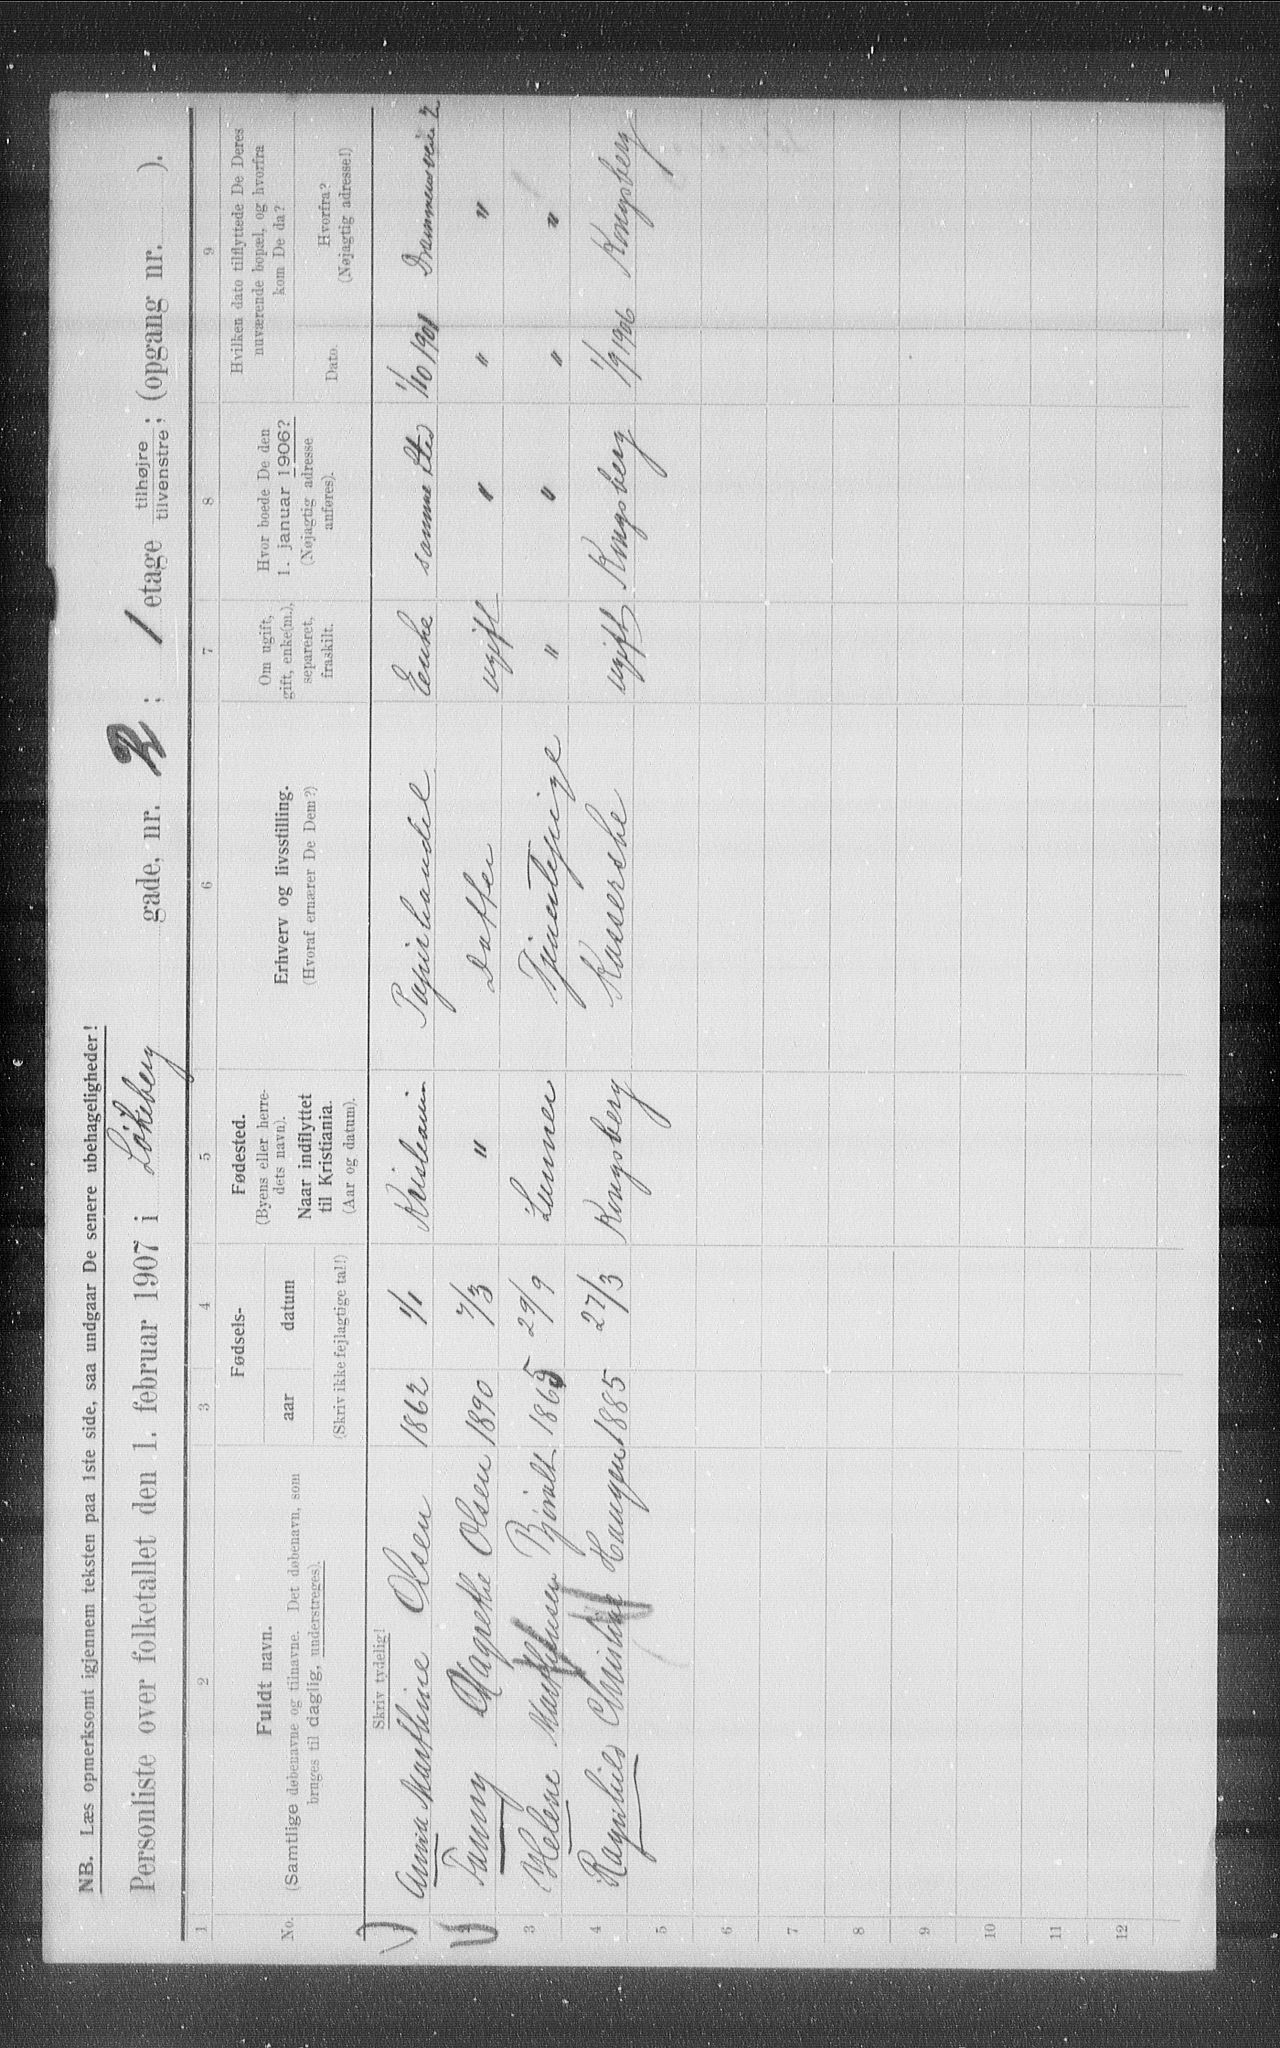 NB. Læs opmerksomt igjennem teksten paa 1ste side, saa undgaar De senere ubehageligheder!
Personliste over folketallet den 1. februar 1907 i Løkeberg gade, nr. 2; 1 etage tilhøjre / tilvenstre; (opgang nr. ).
1 2 3 4 5 6 7 8 9
No.
Fuldt navn.
(Samtlige døbenavne og tilnavne. Det døbenavn, som
bruges til daglig, understreges).
Fødsels-
aar datum
(Skriv ikke fejlagtige tal!)
Fødested.
(Byens eller herre-
dets navn).
Naar indflyttet
til Kristiania.
(Aar og datum).
Erhverv og livsstilling.
(Hvoraf ernærer De Dem?)
Om ugift,
gift, enke(m.),
separeret,
fraskilt.
Hvor boede De den
1. januar 1906?
(Nøjagtig adresse
anføres).
Hvilken dato tilflyttede De Deres
nuværende bopæl, og hvorfra
kom De da?
Dato.
Hvorfra?
(Nøjagtig adresse!)
Skriv tydelig!
1 Anna Marthine Olsen 1862 1/1 Kristiania Papirhandel Enke samme sted 1/10 1901 Drammensveien 2
2 Fanny Magrethe Olsen 1890 7/3 " Datter ugift " " "
3 Helene Mathisen 1865 29/9 Lunner Tjenestepige " " " "
4 Ragnhild Christine Haugen 1885 27/3 Kongsberg Kasserske ugift Kongsberg 1/9 1906 Kongsberg
5
6
7
8
9
10
11
12